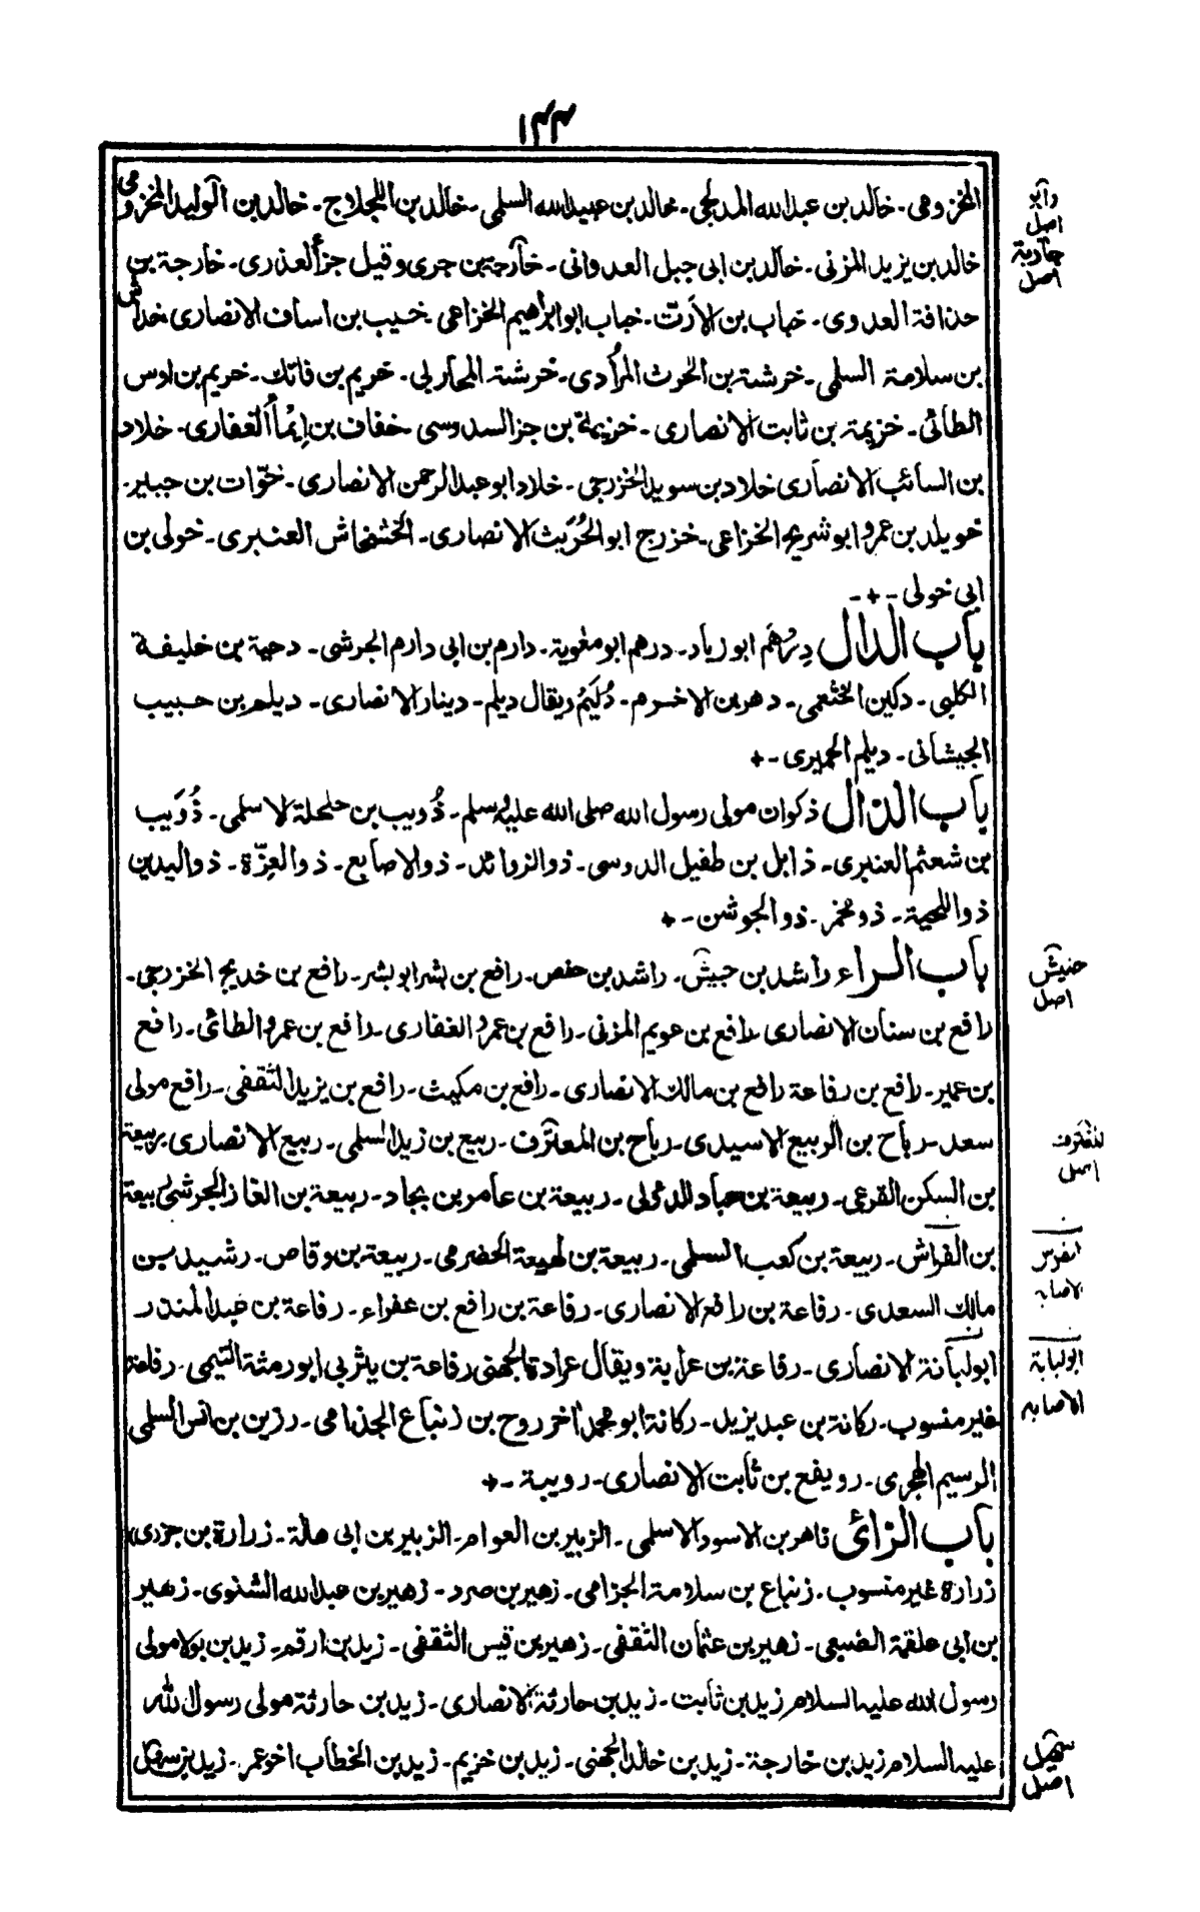 المخزومى۔ خالد بن عبدالله المدلجى۔ خالد بن عبيدالله السلمى۔ خالد بن اللجلاج۔ خالد بن الوليد المخزومى
خالد بن يزيد المزنى۔ خالد بن ابى جبل العدوانى۔ خارجة بن جرى وقيل جزأ العذرى۔ خارجة بن
حذافة العدوى۔ خباب بن الارت۔ خباب ابو ابراهيم الخزاعى۔ خبيب بن اساف الانصارى خداش
بن سلامة السلمى۔ خرشة بن الحرث المرادى۔ خرشة المحاربى۔ خريم بن فاتك۔ خريم بن اوس
الطائى۔ خزيمة بن ثابت الانصارى۔ خزيمة بن جز السدوسى۔ خفاف بن ايمأ الغفارى۔ خلاد
بن السائب الانصارى خلاد بن سويد الخزرجى۔ خلاد ابو عبد الرحمن الانصارى۔ خوّات بن جبير۔
خويلد بن عمرو ابو شريح الخزاعى۔ خزرج ابو الحُرَيث الانصارى۔ الخشخاش العنبرى۔ خولى بن
ابى خولى۔+۔
باب الدال درهم ابو زياد۔ درهم ابو معٰوية۔ دارم بن ابى دارم الجرشى۔ دحية بن خليفة
الكلبى۔ دكين الخثعمى۔ دهر بن الاخرم۔ دُلَيم ويقال ديلم۔ دينار الانصارى۔ ديلم بن حبيب
الجيشانى۔ ديلم الحميرى۔+
باب الذال ذكوان مولى رسول الله صلى الله عليه وسلم۔ ذُويب بن حلحلة الاسلمى۔ ذُوَيب
بن شعثم العنبرى۔ ذابل بن طفيل الدوسى۔ ذو الزوائد۔ ذو الاصابع۔ ذو العزّة۔ ذو اليدين
ذو اللحية۔ ذو مخمر۔ ذو الجوشن۔+
باب الراء راشد بن حبيش۔ راشد بن حفص۔ رافع بن بشر ابو بشر۔ رافع بن خديج الخزرجى۔
رافع بن سنان الانصارى رافع بن عويم المزنى۔ رافع بن عمرو الغفارى۔ رافع بن عمرو الطائى۔ رافع
بن عمير۔ رافع بن رفاعة رافع بن مالك الانصارى۔ رافع بن مكيث۔ رافع بن يزيد الثقفى۔ رافع مولى
سعد۔ رباح بن الربيع الاسيدى۔ رباح بن المعترف۔ ربيع بن زيد السلمى۔ ربيع الانصارى ربيعة
بن السكن القرعى۔ ربيعة بن عباد الدؤلى۔ ربيعة بن عامر بن بجاد۔ ربيعة بن الغاز الجرشى ربيعة
بن الفراش۔ ربيعة بن كعب السلمى۔ ربيعة بن لهيعة الحضرمى۔ ربيعة بن وقاص۔ رشيد بن
مالك السعدى۔ رفاعة بن رافع الانصارى۔ رفاعة بن رافع بن عفراء۔ رفاعة بن عبد المنذر
ابو لبانة الانصارى۔ رفاعة بن عرابة ويقال عرادة الجهنى رفاعة بن يثربى ابو رمثة التيمى۔ رفاعة
غير منسوب۔ ركانة بن عبد يزيد۔ ركانة ابو محمد اخر روح بن زنباع الجذامى۔ رزين بن انس السلمى
الرسيم الهجرى۔ رويفع بن ثابت الانصارى۔ رويبة۔+
باب الزائى زاهر بن الاسود الاسلمى۔ الزبير بن العوام۔ الزبير بن ابى هالة۔ زرارة بن جزى
زرارة غير منسوب۔ زنباع بن سلامة الجزامى۔ زهير بن صرد۔ زهير بن عبد الله الشنوى۔ زهير
بن ابى علقمة الضبعى۔ زهير بن عثمان الثقفى۔ زهير بن قيس الثقفى۔ زيد بن ارقم۔ زيد بن بولا مولى
رسول الله عليه السلام زيد بن ثابت۔ زيد بن حارثة الانصارى۔ زيد بن حارثة مولى رسول الله
عليه السلام زيد بن خارجة۔ زيد بن خالد الجهنى۔ زيد بن خزيم۔ زيد بن الخطاب اخو عمر۔ زيد بن سهل
وابو
اصل
اصل
حنيش
اصل
اصل
الاصابه
ابو لبابة
الاصابه
سهيل
اصل